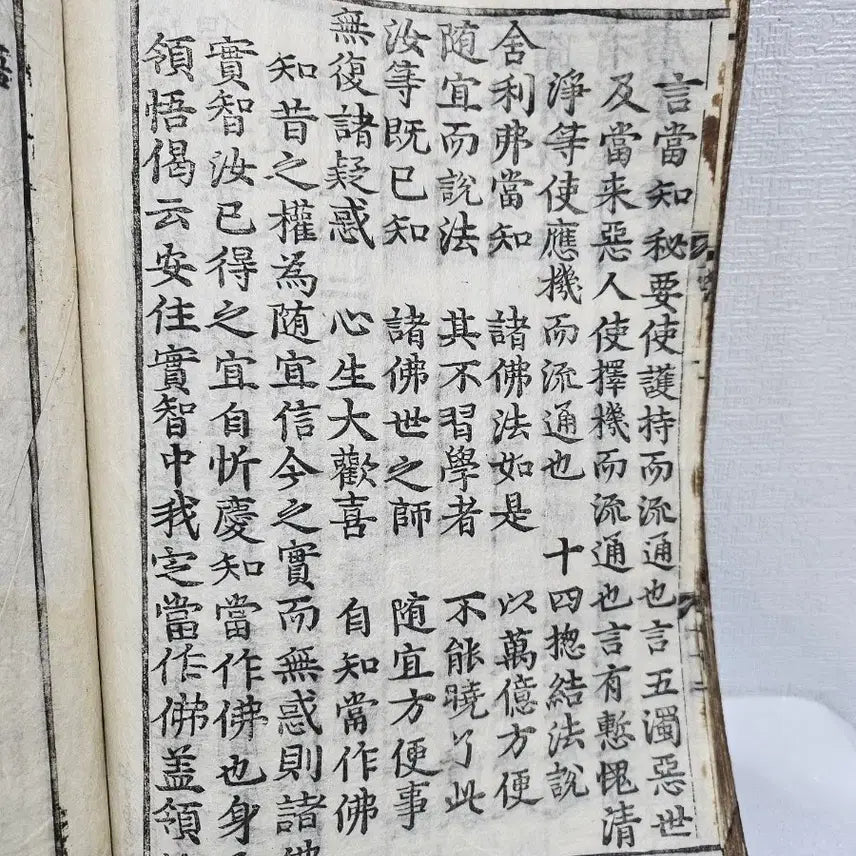 言當知秘要使護持而流通也言五濁惡世
及當来惡人使擇機而流通也言有慙愧清
淨等使應機而流通也 十四揔結法說
舍利弗當知 諸佛法如是 以萬億方便
随宜而說法 其不習學者 不能曉了此
汝等既已知 諸佛世之師 随宜方便事
無復諸疑惑 心生大歡喜 自知當作佛
知昔之權為随宜信今之實而無惑則諸佛
實智汝已得之宜自忻慶知當作佛也身
領悟偈云安住實智中我定當作佛盖領